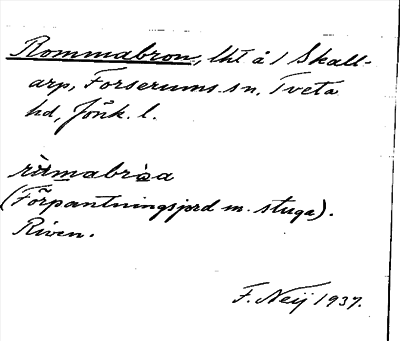 Rommabron, lht å 1 Skall-
arp, Forserums sn, Tveta
hd, Jönk. l.
rùmabròa
(Förpantningsjord m. stuga).
Riven.
F. Neij 1937.